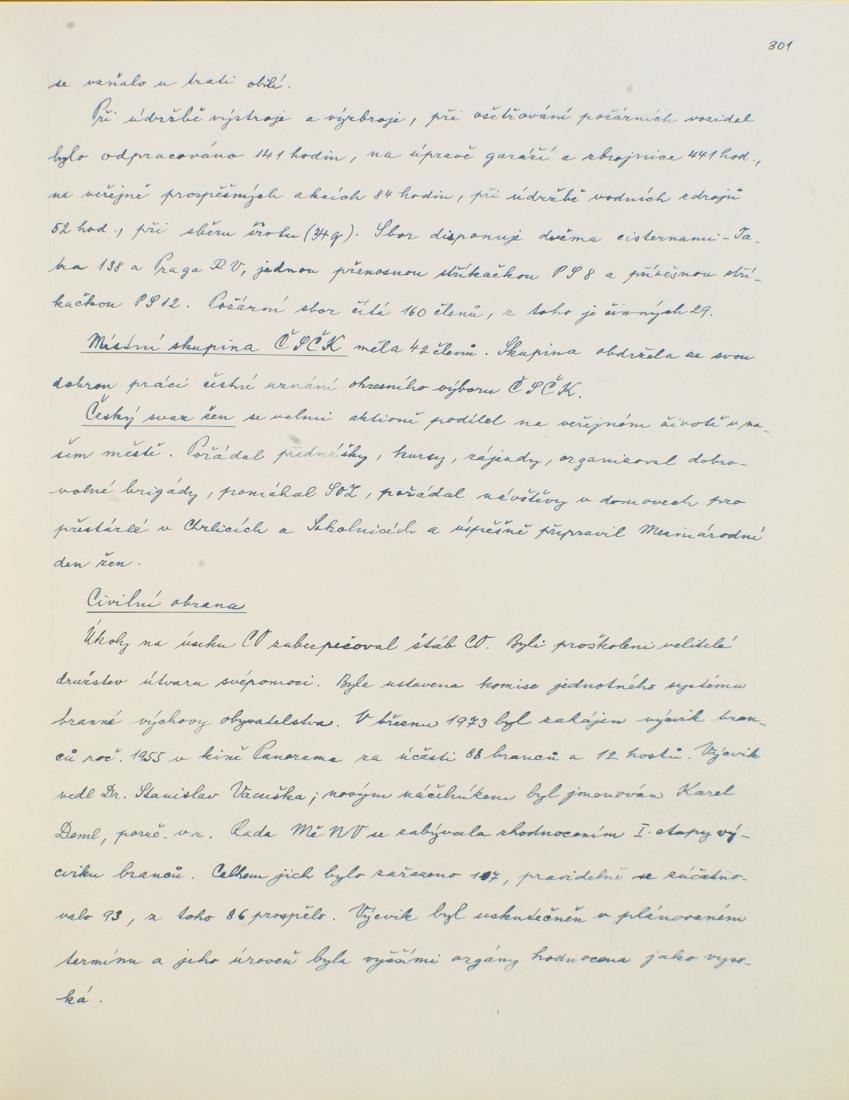 301
se vařilo u trati obilí.
Při údržbě výstroje a výzbroje, při ošetřování požárních vozidel
bylo odpracováno 141 hodin, na úpravě garáží a zbrojnice 441 hod.,
na veřejně prospěšných akcích 84 hodin, při údržbě vodních zdrojů
52 hod., při sběru šrotu (34 q). Sbor disponuje dvěma cisternami - Ta-
tra 138 a Praga RV, jednou přenosnou stříkačkou PS 8 a přívěsnou stří-
kačkou PS 12. Požární sbor čítá 160 členů, z toho je činných 29.
Místní skupina ČSČK měla 42 členů. Skupina obdržela za svou
dobrou práci čestné uznání okresního výboru ČSČK.
Český svaz žen se velmi aktivně podílel na veřejném životě v na-
šem městě. Pořádal přednášky, kursy, zájezdy, organizoval dobro-
volné brigády, pomáhal SOZ, pořádal návštěvy v domovech pro
přestárlé v Chrlicích a Sokolnicích a úspěšně připravil Mezinárodní
den žen.
Civilní obrana
Úkoly na úseku CO zabezpečoval štáb CO. Byli proškoleni velitelé
družstev útvaru svépomoci. Byla ustavena komise jednotného systému
branné výchovy obyvatelstva. V březnu 1973 byl zahájen výcvik bran-
ců roč. 1955 v kině Panorama za účasti 88 branců a 12 hostů. Výcvik
vedl Dr. Stanislav Vacuška; novým náčelníkem byl jmenován Karel
Deml, porč. v.z. Rada MěNV se zabývala zhodnocením I. etapy vý-
cviku branců. Celkem jich bylo zařazeno 107, pravidelně se zúčastňo-
valo 93, z toho 86 prospělo. Výcvik byl uskutečněn v plánovaném
termínu a jeho úroveň byla vyššími orgány hodnocena jako vyso-
ká.